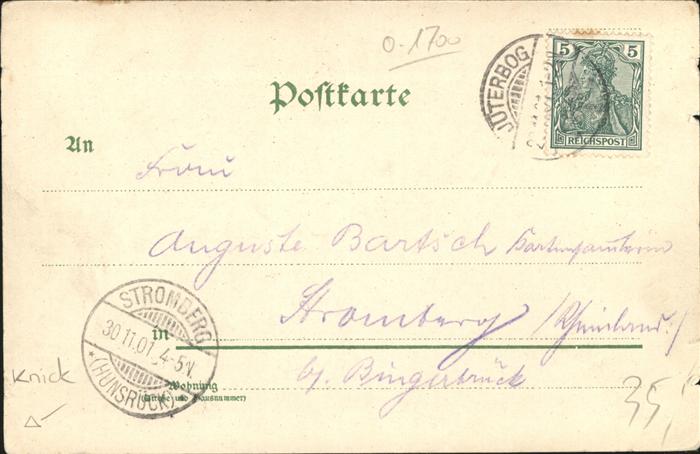 0-1700
JÜTERBOG
5 5
REICHSPOST
Postkarte
An
Frau
Auguste Bartsch
Stromberg /Rheinland./
in
b/. Bingerbrück
Wohnung
(Straße und Hausnummer)
STROMBERG
30.11.01. 4-5 N.
*(HUNSRÜCK)
Knick
35,